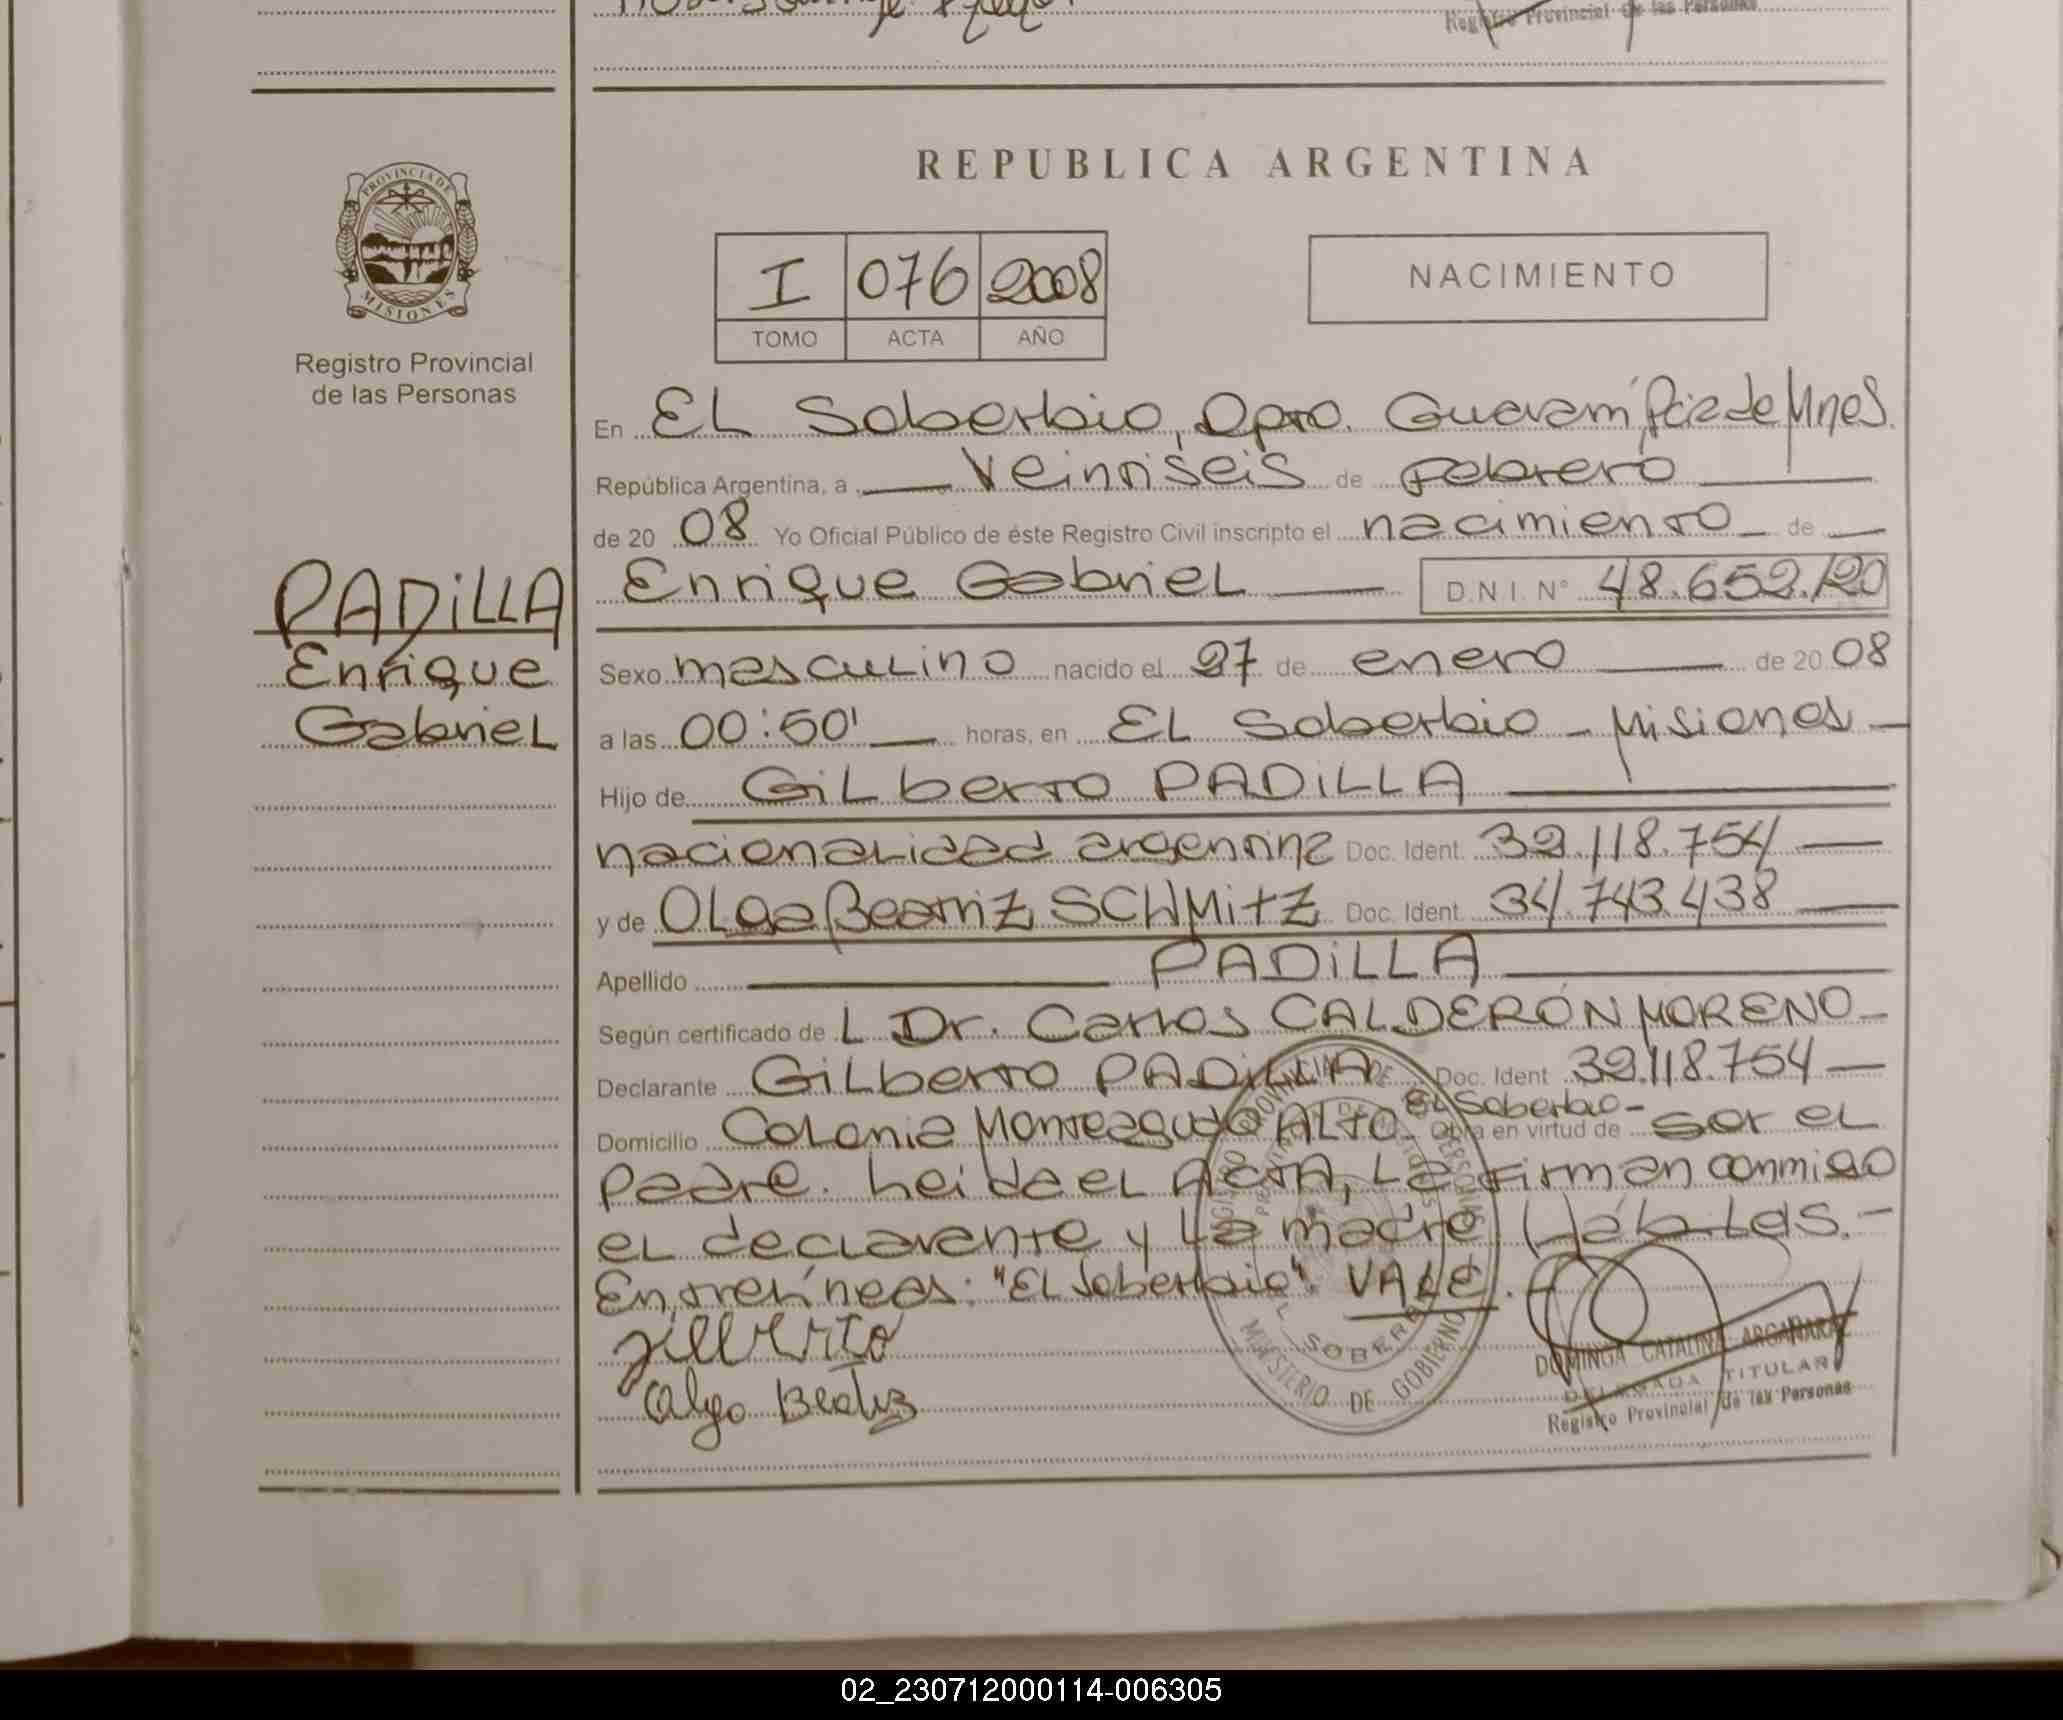 Registro Provincial de las Personas
REPUBLICA ARGENTINA
PROVINCIA DE
MISIONES
Registro Provincial
de las Personas
I 076 2008
TOMO ACTA AÑO
NACIMIENTO
En EL Soberbio, Dpto. Guaraní, Pcia de Mnes.
República Argentina, a Veintiseis de Febrero
de 20 08 Yo Oficial Público de éste Registro Civil inscripto el nacimiento de
PADiLLA
Enrique
Gabriel
Enrique Gabriel D.N.I. N° 48.652.120
Sexo masculino nacido el 27 de enero de 20 08
a las 00:50' horas, en EL Soberbio - Misiones
Hijo de GiLberto PADiLLA
nacionalidad argentina Doc. Ident. 32.118.754
y de OLga Beatriz SCHMitZ Doc. Ident. 34.743.438
Apellido PADiLLA
Según certificado de L Dr. Carlos CALDERÓN MORENO
Declarante GiLberto PADiLLA Doc. Ident 32.118.754
EL Soberbio
Domicilio Colonia Monteagudo ALto Obra en virtud de ser el
padre. Leida el ACTA, La firman conmigo
el declarante y La madre Hábiles.-
Entrelíneas: "EL Soberbio". VALE.
Gilberto
Olga Beatriz
EL SOBERBIO
MINISTERIO DE GOBIERNO
DOMINGA CATALINA ARGAÑARAZ
DELEGADA TITULAR
Registro Provincial de las Personas
02_230712000114-006305